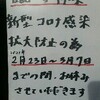 新型コロナ感染
拡大防止の為
2月23日〜3月7日
までの間、お休み
させていただきます